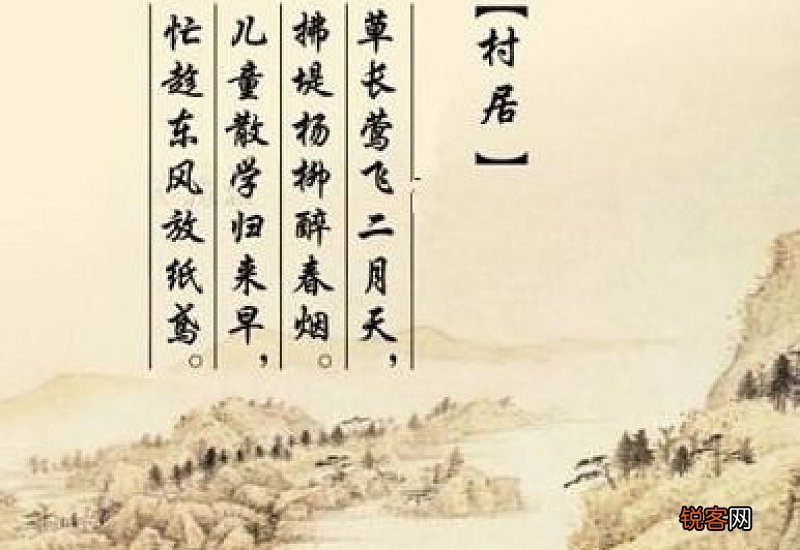 【村居】
草长莺飞二月天，
拂堤杨柳醉春烟。
儿童散学归来早，
忙趁东风放纸鸢。
锐客网